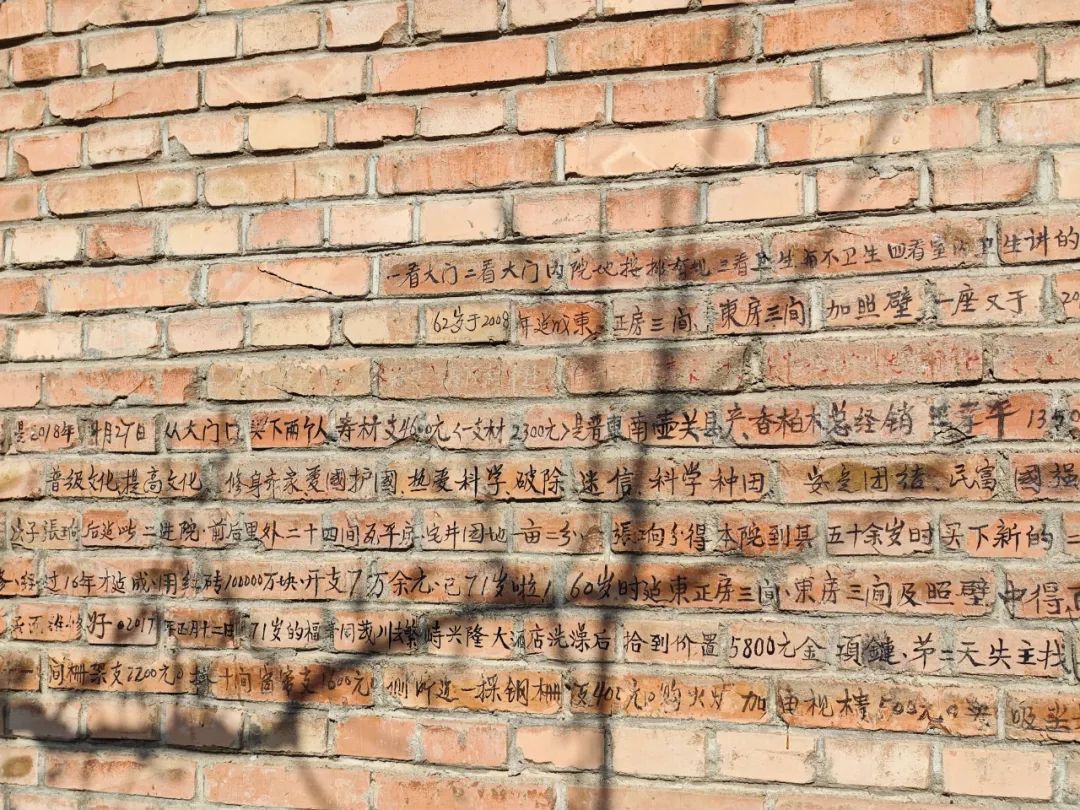 一看大门二看大门内院地按排有规三看卫生与不卫生四看室内卫生讲的
62岁于2008年造成東正房三间、東房三间加照壁一座又于20
是2018年4月27日从大门口买下两个人寿材支4600元〈一支材2300元〉是晋東南壶关县产、香柏木总经销 平135
晋级文化提高文化 修身齐家爱國护國、热爱科学、破除迷信科学种田 安定团结、民富國强
公子張珦后造此二进院·前后里外二十四间瓦平房·宅井园地一亩二分、張珦分得本院到其五十余岁时买下新的二
经过16年才造成、用红砖100000万块·开支7万余元、已71岁啦！60岁时造東正房三间、東房三间及照壁中得
好。2017年五月十二日71岁的福 同茂川去繁峙兴隆大酒店洗澡后拾到价置5800元金項鏈、茀二天失主找
一间栅架支2200元。 十间窗 支1600元。侧所造一探钢栅·支402元。购火炉加电视機500元。 吸尘